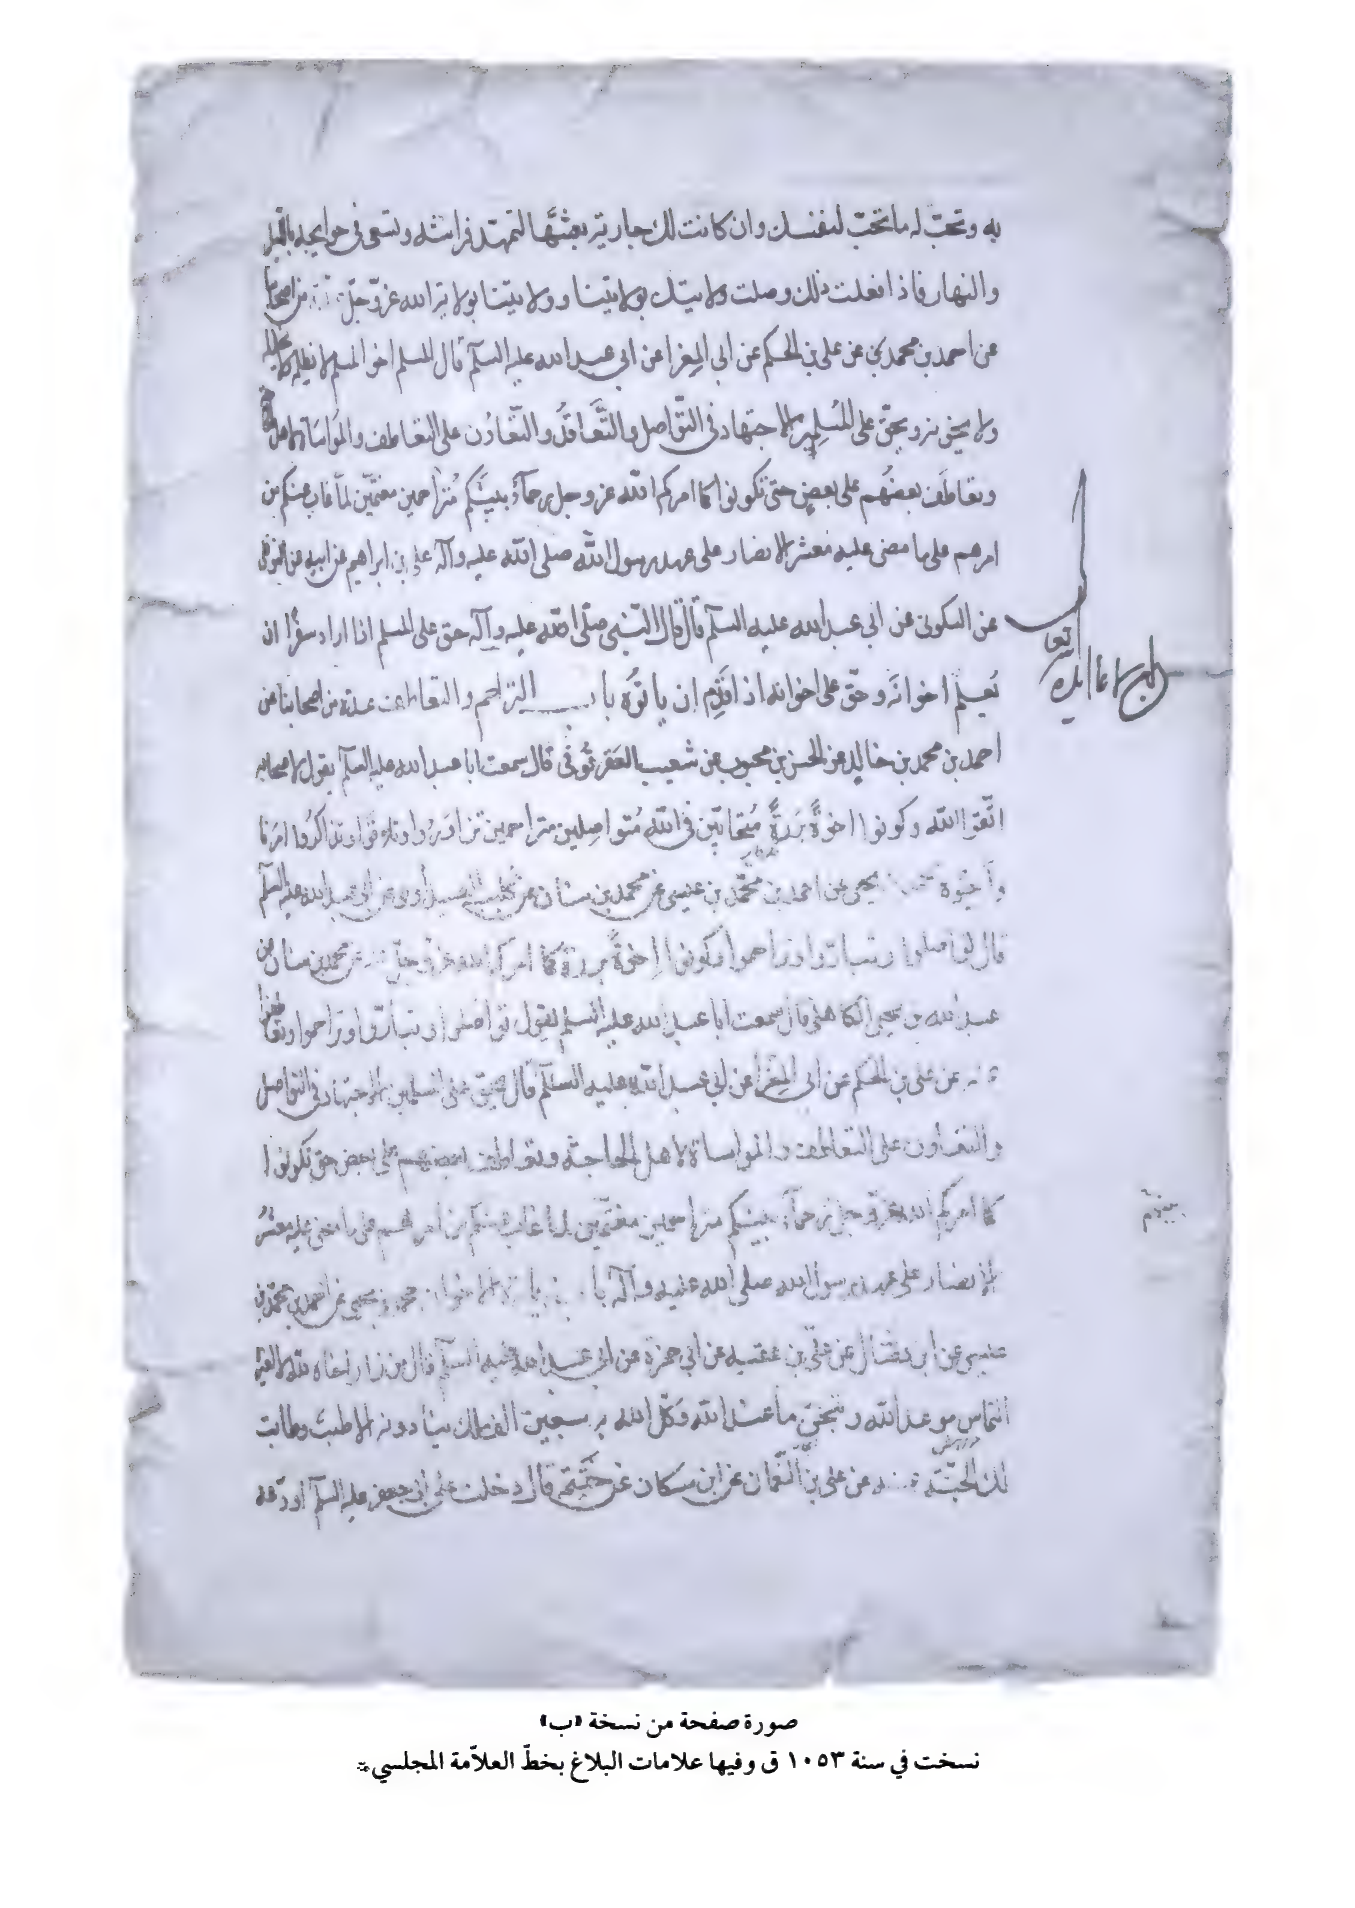 به وتحبّ له ما تحبّ لنفسك وان كانت لك جارية بعثتها لتمهّد فراشه وتسعى فى حوايجه بالليل
والنهار فاذا فعلت ذلك وصلت ولايتك بولايتنا وولايتنا بولاية الله عزّ وجلّ من اصحابنا
عن احمد بن محمد عن على بن الحكم عن ابى المغرا عن ابى عبد الله عليه السلم قال المسلم اخو المسلم لا يظلمه ولا
ولا يخونه ويحقّ على المسلمين الاجتهاد فى التّواصل والتَّعاقد والتّعاون على التعاطف والمواساة لاهل
وتعاطف بعضهم على بعض حتى تكونوا كما امركم الله عز وجل رحماء بينكم متراحمين مغتمّين لما غاب عنكم من
امرهم على ما مضى عليه معشر الانصار على عهد رسول الله صلى الله عليه وآله على بن ابراهيم عن ابيه عن النوفلى
عن السكونى عن ابى عبد الله عليه السلم قال قال النبى صلى الله عليه وآله حق على المسلم اذا اراد سفرا ان
يُعلم اخوانه وحقّ على اخوانه اذا قدم ان ياتوه باب التراحم والتعاطف عدة من اصحابنا عن
احمد بن محمد بن خالد عن الحسن بن محبوب عن شعيب العقرقوفى قال سمعت ابا عبد الله عليه السلم يقول لاصحابه
اتّقوا الله وكونوا اخوةً بَرَرةً متحابّين فى الله متواصلين متراحمين تزاوروا وتلاقوا وتذاكروا امرنا
وأحيوه يحيى عن احمد بن محمّد بن عيسى عن محمد بن سنان عن كليب الصيداوى عن ابى عبد الله عليه السلم
قال تواصلوا وتبارّوا وتراحموا وكونوا اخوةً بررة كما امركم الله عز وجلّ عن محمد بن سنان عن
عبد الله بن يحيى الكاهلى قال سمعت ابا عبد الله عليه السلم يقول تواصلوا وتبارّوا وتراحموا وتعاطفوا
عنه عن على بن الحكم عن ابى المغرا عن ابى عبد الله عليه السلم قال يحقّ على المسلمين الاجتهاد فى التواصل
والتعاون على التعاطف والمواساة لاهل الحاجة وتعاطف بعضهم على بعض حتى تكونوا
كما امركم الله عز وجل رحماء بينكم متراحمين مغتمّين لما غاب عنكم من امرهم على ما مضى عليه معشر
الانصار على عهد رسول الله صلى الله عليه وآله باب زيارة الاخوان محمد بن يحيى عن احمد بن محمد بن
عيسى عن ابن فضال عن علىّ بن عقبه عن ابى حمزة عن ابى عبد الله عليه السلم قال من زار اخاه لله لا لغيره
التماس موعد الله وتنجّز ما عند الله وكّل الله به سبعين الف ملك ينادونه الا طبت وطابت
لك الجنّة عنه عن على بن النّعمان عن ابن مسكان عن خيثمة قال دخلت على ابى جعفر عليه السلم اودّعه
بلغ سماعا ايده الله تعالى
بينهم
صورة صفحة من نسخة «ب»
نسخت في سنة ١٠٥٣ ق وفيها علامات البلاغ بخطّ العلاّمة المجلسي